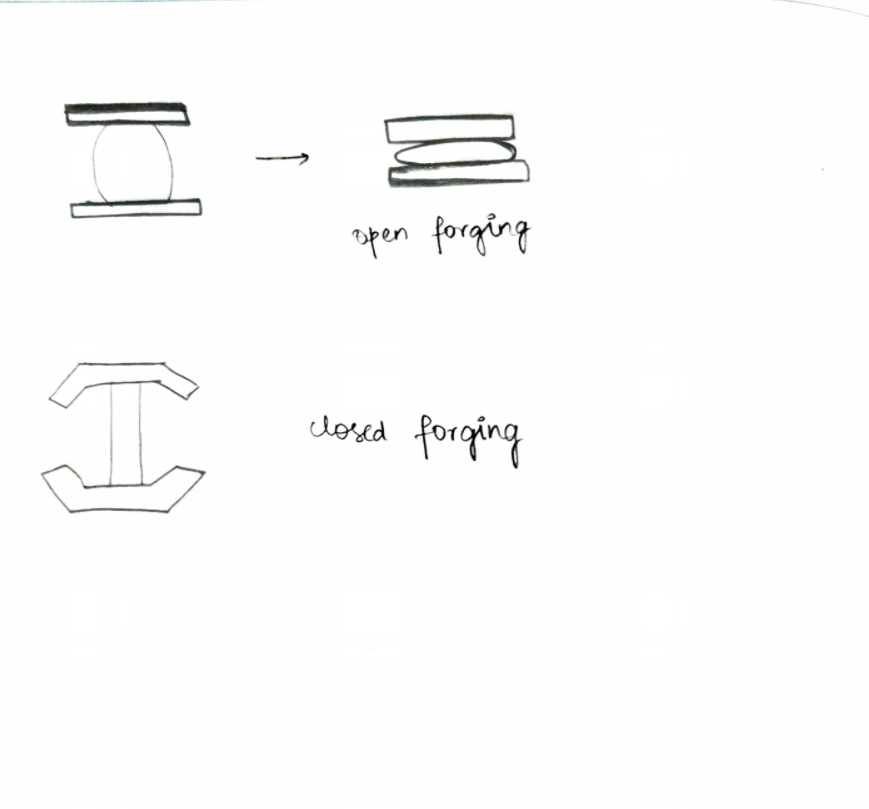 open forging
closed forging